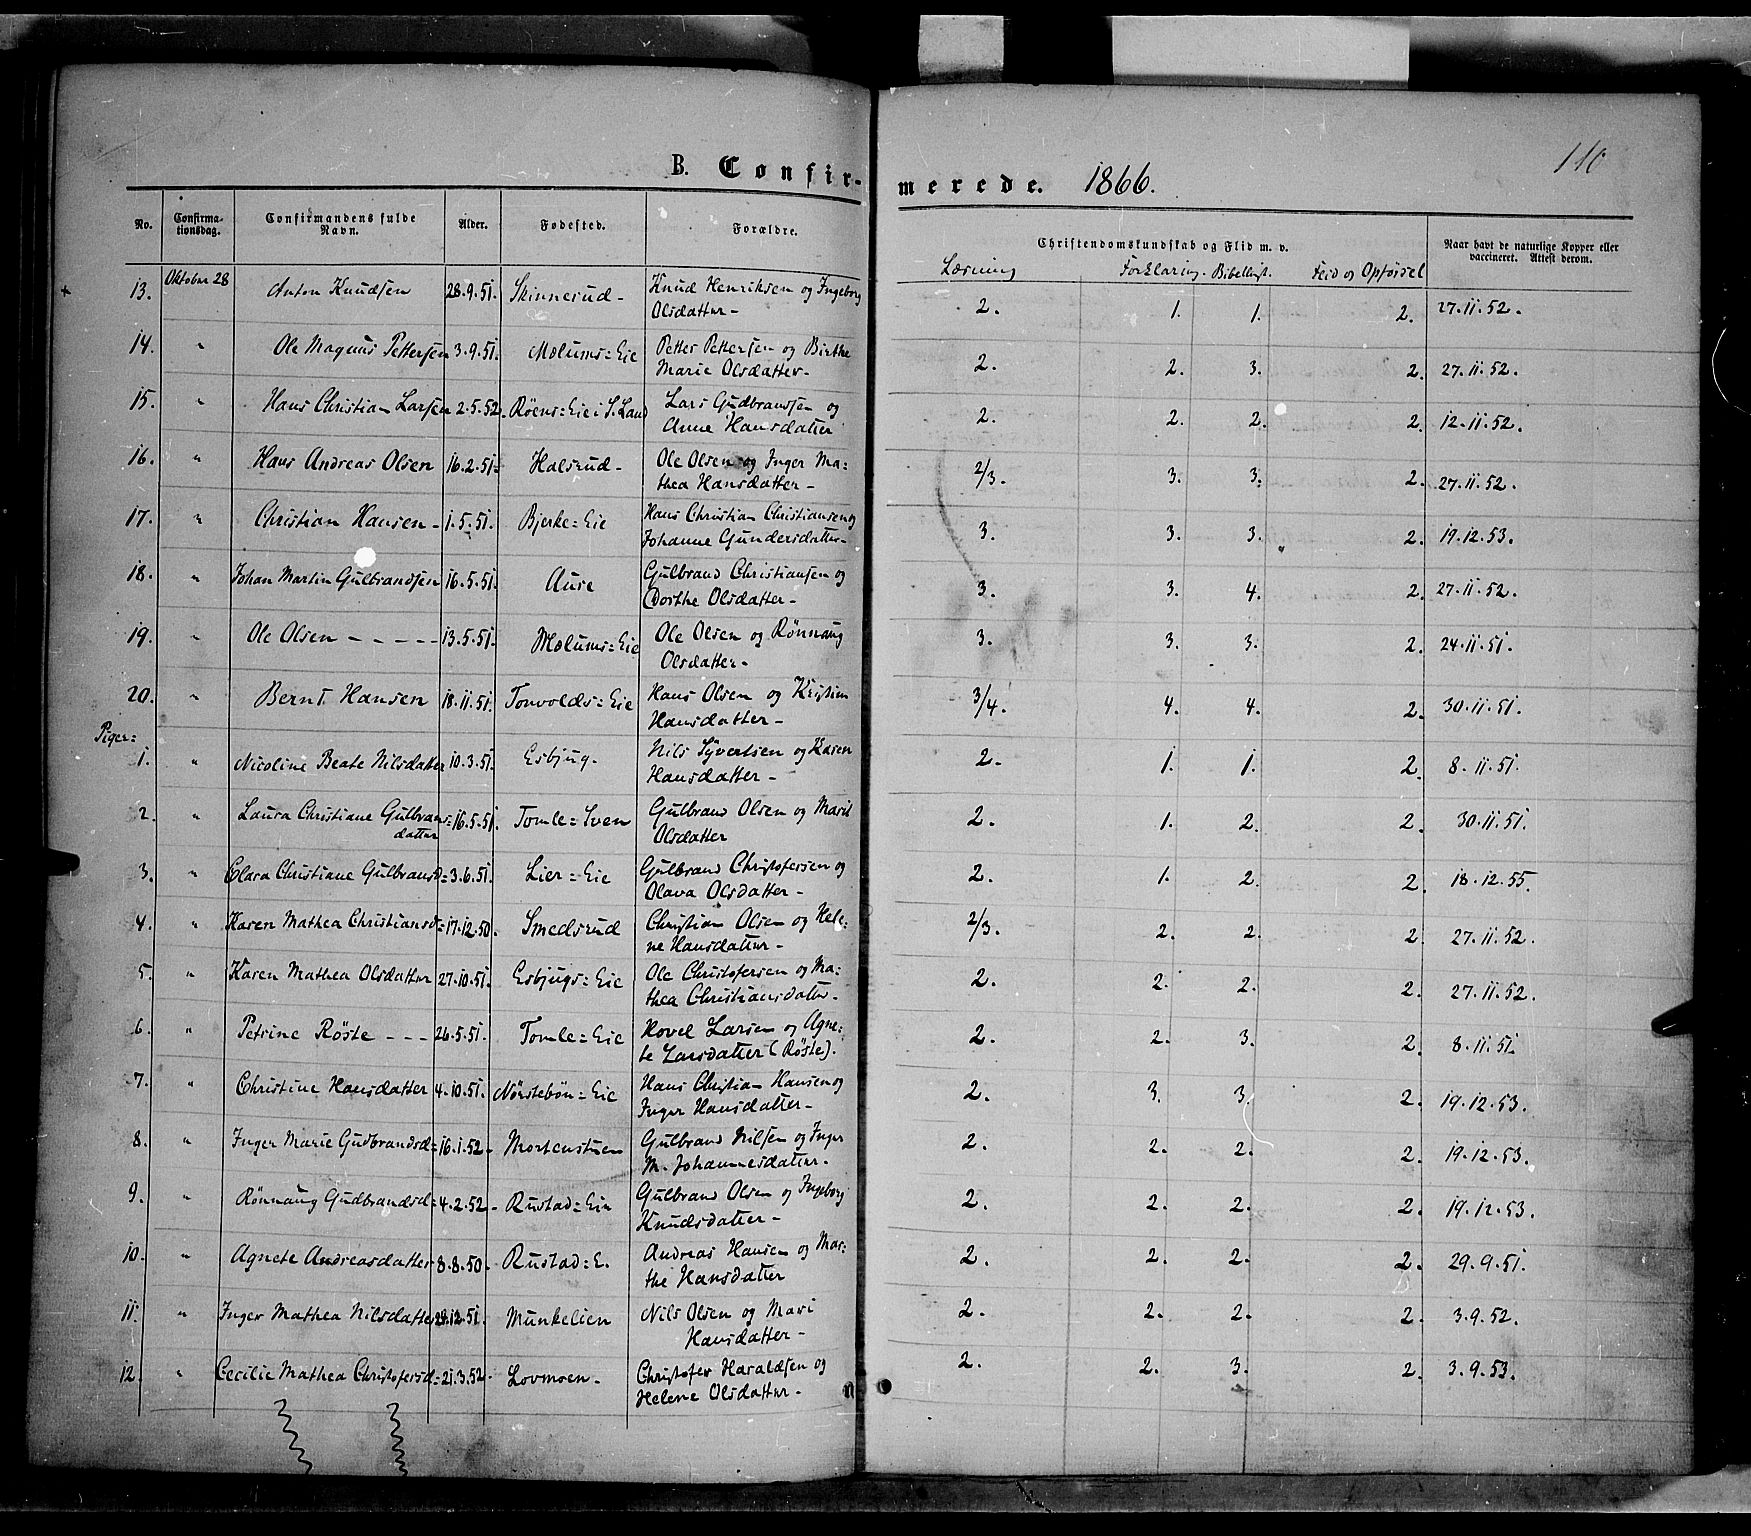 110
B. Confirmerede. 1866.
No. Confirmationsdag. Confirmandens fulde Navn. Alder. Fødested. Forældre. Christendomskundskab og Flid m. v. Naar havt de naturlige Kopper eller vaccineret. Attest derom.
Læsning Forklaring. Bibelhist. Flid og Opførsel
13. Oktober 28 Anton Knudsen 28.9.51. Skinnerud- Knud Henriksen og Ingeborg 2. 1. 1. 2. 27.11.52.
Olsdatter-
14. " Ole Magnus Pettersen 3.9.51. Mælums=Eie Petter Pettersen og Birthe 2. 2. 3. 2. 27.11.52.
Marie Olsdatter-
15. " Hans Christian Larsen 2.5.52. Røens=Eie i S. Land Lars Gudbrandsen og 2. 2. 2. 2. 12.11.52.
Anne Hansdatter
16. " Hans Andreas Olsen 16.2.51. Halsrud- Ole Olsen og Inger Ma= 2/3. 3. 3. 2. 27.11.52.
thea Hansdatter-
17. " Christian Hansen- 1.5.51. Bjerke=Eie Hans Christian Christiansen og 3. 3. 3. 2. 19.12.53.
Johanne Gundersdatter-
18. " Johan Martin Gulbrandsen 16.5.51. Aure Gulbrand Christiansen og 3. 3. 4. 2. 27.11.52.
Dorthe Olsdatter-
19. " Ole Olsen ----- 13.5.51. Mælums=Eie Ole Olsen og Rønnaug 3. 3. 3. 2. 24.11.51.
Olsdatter-
20. " Bernt Hansen 18.11.51. Tonvolds=Eie Hans Olsen og Kristien 3/4. 4. 4. 2. 30.11.51.
Hansdatter-
Piger:
1. " Nicoline Beate Nilsdatter 10.3.51. Esbjug- Nils Syvertsen og Karen 2. 1. 1. 2. 8.11.51.
Hansdatter-
2. " Laura Christiane Gulbrans= 16.5.51. Tomle=Sven Gulbrand Olsen og Marit 2. 1. 2. 2. 30.11.51.
datter Olsdatter
3. " Clara Christiane Gulbransd= 3.6.51. Lier=Eie Gulbrand Christofersen og 2. 1. 2. 2. 18.12.55.
Olava Olsdatter-
4. " Karen Mathea Christiansd= 17.12.50. Smedsrud Christian Olsen og Hele= 2/3. 2. 2. 2. 27.11.52.
ne Hansdatter-
5. " Karen Mathea Olsdatter 27.10.51. Esbjugs=Eie Ole Christofersen og Ma= 2. 2. 2. 2. 27.11.52.
thea Christiansdatter.
6. " Petrine Røste --- 26.5.51. Tomle=Eie Hovel Larsen og Agne= 2. 2. 3. 2. 8.11.51.
te Larsdatter (Røste).
7. " Christine Hansdatter 4.10.51. Nørstebøn=Eie Hans Christian Hansen og 2. 3. 3. 2. 19.12.53.
Inger Hansdatter-
8. " Inger Marie Gudbrandsd= 16.1.52. Mortenstuen Gulbrand Nilsen og Inger 2. 2. 2. 2. 19.12.53.
M. Johannesdatter.
9. " Rønnaug Gudbrandsd= 4.2.52- Rustad=Eie Gulbrand Olsen og Ingeborg 2. 2. 2. 2. 19.12.53.
Knudsdatter-
10. " Agnete Andreasdatter 8.8.50. Rustad=E. Andreas Hansen og Mar= 2. 2. 2. 2. 29.9.51.
the Hansdatter
11. " Inger Mathea Nilsdatter 12.51. Munkelien Nils Olsen og Mari 2. 2. 2. 2. 3.9.52.
Hansdatter-
12. " Cecilie Mathea Christofersd= 21.3.52. Lovmoen- Christofer Haraldsen og 2. 2. 3. 2. 3.9.53.
Helene Olsdatter-